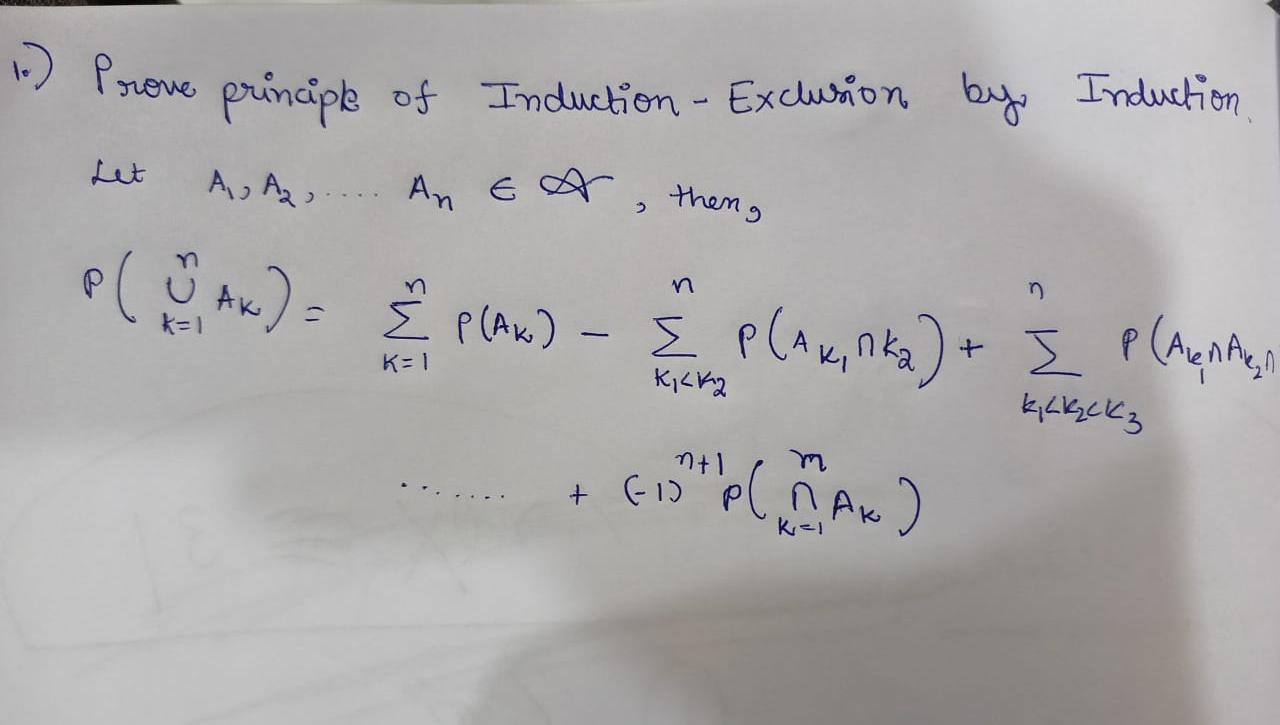 1.) Prove principle of Induction - Exclusion by Induction.
Let A₁, A₂, .... Aₙ ∈ 𝒜, then,
P( ⋃ₖ₌₁ⁿ Aₖ ) = Σₖ₌₁ⁿ P(Aₖ) - Σₖ₁<ₖ₂ⁿ P(Aₖ₁ ∩ k₂) + Σₖ₁<ₖ₂<ₖ₃ⁿ P(Aₖ₁ ∩ Aₖ₂ ∩
....... + (-1)ⁿ⁺¹ P( ⋂ₖ₌₁ᵐ Aₖ )